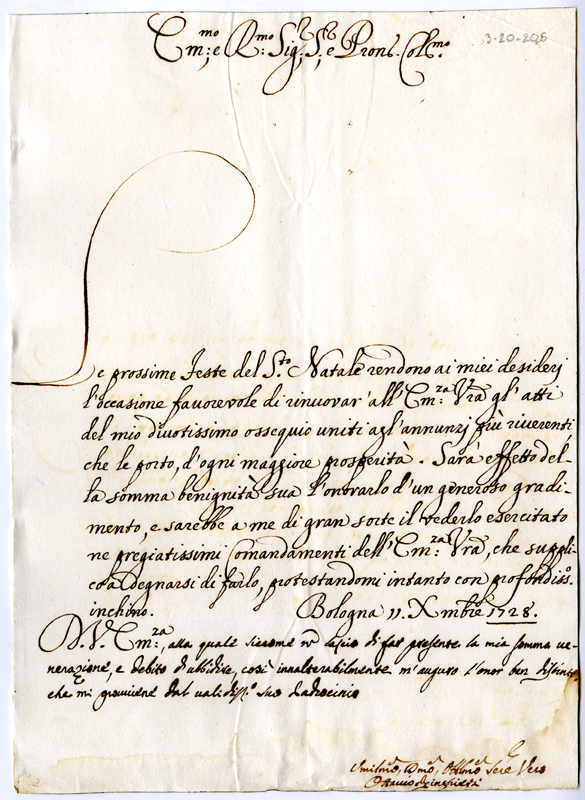 Em:mo e R:mo Sig:r S:r e Pron. Col:mo
3-20-206
Le prossime Feste del S:to Natale rendono ai miei desiderj
l'occasione favorevole di rinuovar' all' Em:za Vrã gl' atti
del mio divotissimo ossequio uniti agl'annunzj più riverenti
che le porto, d'ogni maggiore prosperità. Sarà effetto del-
la somma benignità sua l'onorarlo d'un generoso gradi-
mento, e sarebbe a me di gran sorte il vederlo esercitato
ne pregiatissimi Comandamenti dell' Em:za Vrã, che suppli-
co a degnarsi di farlo, protestandomi intanto con profondiss.o
inchino. Bologna 11. Xmbre 1728.
D. V. Em:za, alla quale siccome nõ lascio di far presente la mia somma ve-
nerazione, e debito d'ubbidire, così inalterabilmente m'auguro l'onor ben distinto
che mi proviene dal validiss.o suo Padrocinio
Umilmo, Dmo, Obblmo Sere Vero